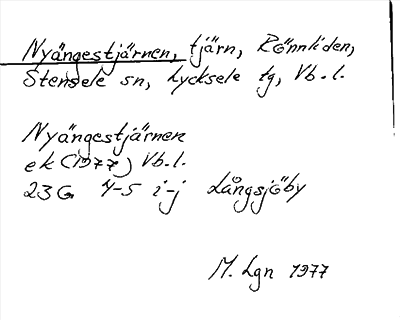 Nyängestjärnen, tjärn, Rönnliden,
Stensele sn, Lycksele tg, Vb. l.
Nyängestjärnen
ek (1977) Vb. l.
23G 4-5 i-j Långsjöby
M. Lgn 1977